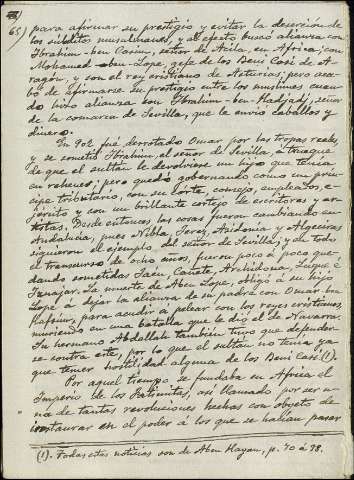 65) para afirmar su prestigio y evitar la deserción de
los súbditos musulmanes, y al efecto buscó alianza con
Ibrahim-ben Casim, señor de Acila, en Africa; con
Mohamed-aben-Lope, gefe de los Beni Casi de A-
ragón, y con el rey cristiano de Asturias; pero aca-
bó de afirmarse su prestigio entre los muslimes cuan-
do hizo alianza con Ibrahim-ben-Hadjadj, señor
de la comarca de Sevilla, que le envió caballos y
dinero.
En 902 fué derrotado Omar por las tropas reales,
y se sometió Ibrahim, el señor de Sevilla, á trueque
de que el sultán le devolviese un hijo que tenía
en rehenes; pero quedó gobernando como un prín-
cipe tributario, con su corte, consejo, empleados, e-
jército y con un brillante cortejo de escritores y ar-
tistas. Desde entonces las cosas fueron cambiando en
Andalucía, pues Niebla, Jerez, Asidonia y Algeciras
siguieron el ejemplo del señor de Sevilla, y en todo
el transcurso de ocho años, fueron poco á poco que-
dando sometidas Jaén, Cazlona, Archidona, Luque, é
Iznájar. La muerte de Aben Lope, obligó á su hijo
Lope á dejar la alianza de su padre con Omar ben
Hafsun, para acudir á pelear con los reyes cristianos,
muriendo en una batalla que le dió el de Navarra.
Su hermano Abdallah también tuvo que defender-
se contra este, por lo que el sultán no tenía ya
que temer hostilidad alguna de los Beni Casi (1).
Por aquel tiempo se fundaba en Africa el
Imperio de los Fatimitas, así llamado por ser u-
na de tantas revoluciones hechas con objeto de
instaurar en el poder á los que se hacían pasar
(1). Todas estas noticias son de Aben Hayan, p. 90 á 98.